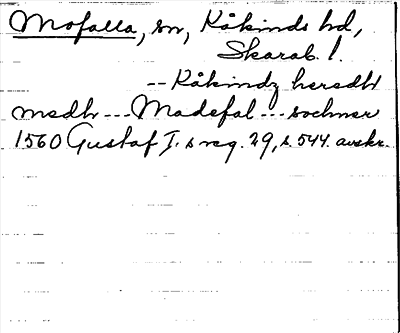 Mofalla, sn, Kåkinds hd,
Skarab. l.
-- Kåkindz heredht
medh --- Madefal --- sochner
1560 Gustaf I. s reg. 29, s. 544. avskr.